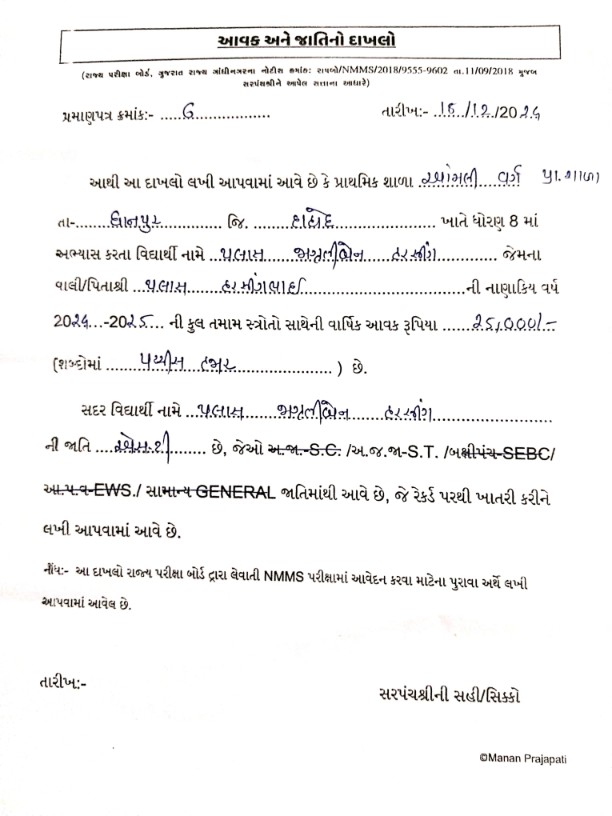 આવક અને જાતિનો દાખલો
(રાજ્ય પરીક્ષા બોર્ડ, ગુજરાત રાજ્ય ગાંધીનગરના નોટીસ ક્રમાંક: રાપબો/NMMS/2018/9555-9602 તા.11/09/2018 મુજબ
સરપંચશ્રીને આપેલ સત્તાના આધારે)
પ્રમાણપત્ર ક્રમાંક:- .....6.................. તારીખ:- .16./12./2024
આથી આ દાખલો લખી આપવામાં આવે છે કે પ્રાથમિક શાળા ..........વર્ગ પ્રા.શાળા
તા-.......ધાનપુર............ જિ. ........દાહોદ........................ ખાતે ધોરણ 8 માં
અભ્યાસ કરતા વિદ્યાર્થી નામે ..પલાસ......જાગૃતીબેન......હરસીંગ.......... જેમના
વાલી/પિતાશ્રી ...પલાસ........હરસીંગભાઈ................................ની નાણાકિય વર્ષ
2024...-2025... ની કુલ તમામ સ્ત્રોતો સાથેની વાર્ષિક આવક રૂપિયા ......25,000/-
(શબ્દોમાં ......પચ્ચીસ હજાર...................... ) છે.
સદર વિદ્યાર્થી નામે ...પલાસ......જાગૃતીબેન......હરસીંગ......................
ની જાતિ .................. છે, જેઓ અ.જા.-S.C. /અ.જ.જા-S.T. /બક્ષીપંચ-SEBC/
આ.પ.વ-EWS./ સામાન્ય GENERAL જાતિમાંથી આવે છે, જે રેકર્ડ પરથી ખાતરી કરીને
લખી આપવામાં આવે છે.
નોંધ:- આ દાખલો રાજ્ય પરીક્ષા બોર્ડ દ્રારા લેવાતી NMMS પરીક્ષામાં આવેદન કરવા માટેના પુરાવા અર્થે લખી
આપવામાં આવેલ છે.
તારીખ:-
સરપંચશ્રીની સહી/સિક્કો
©Manan Prajapati